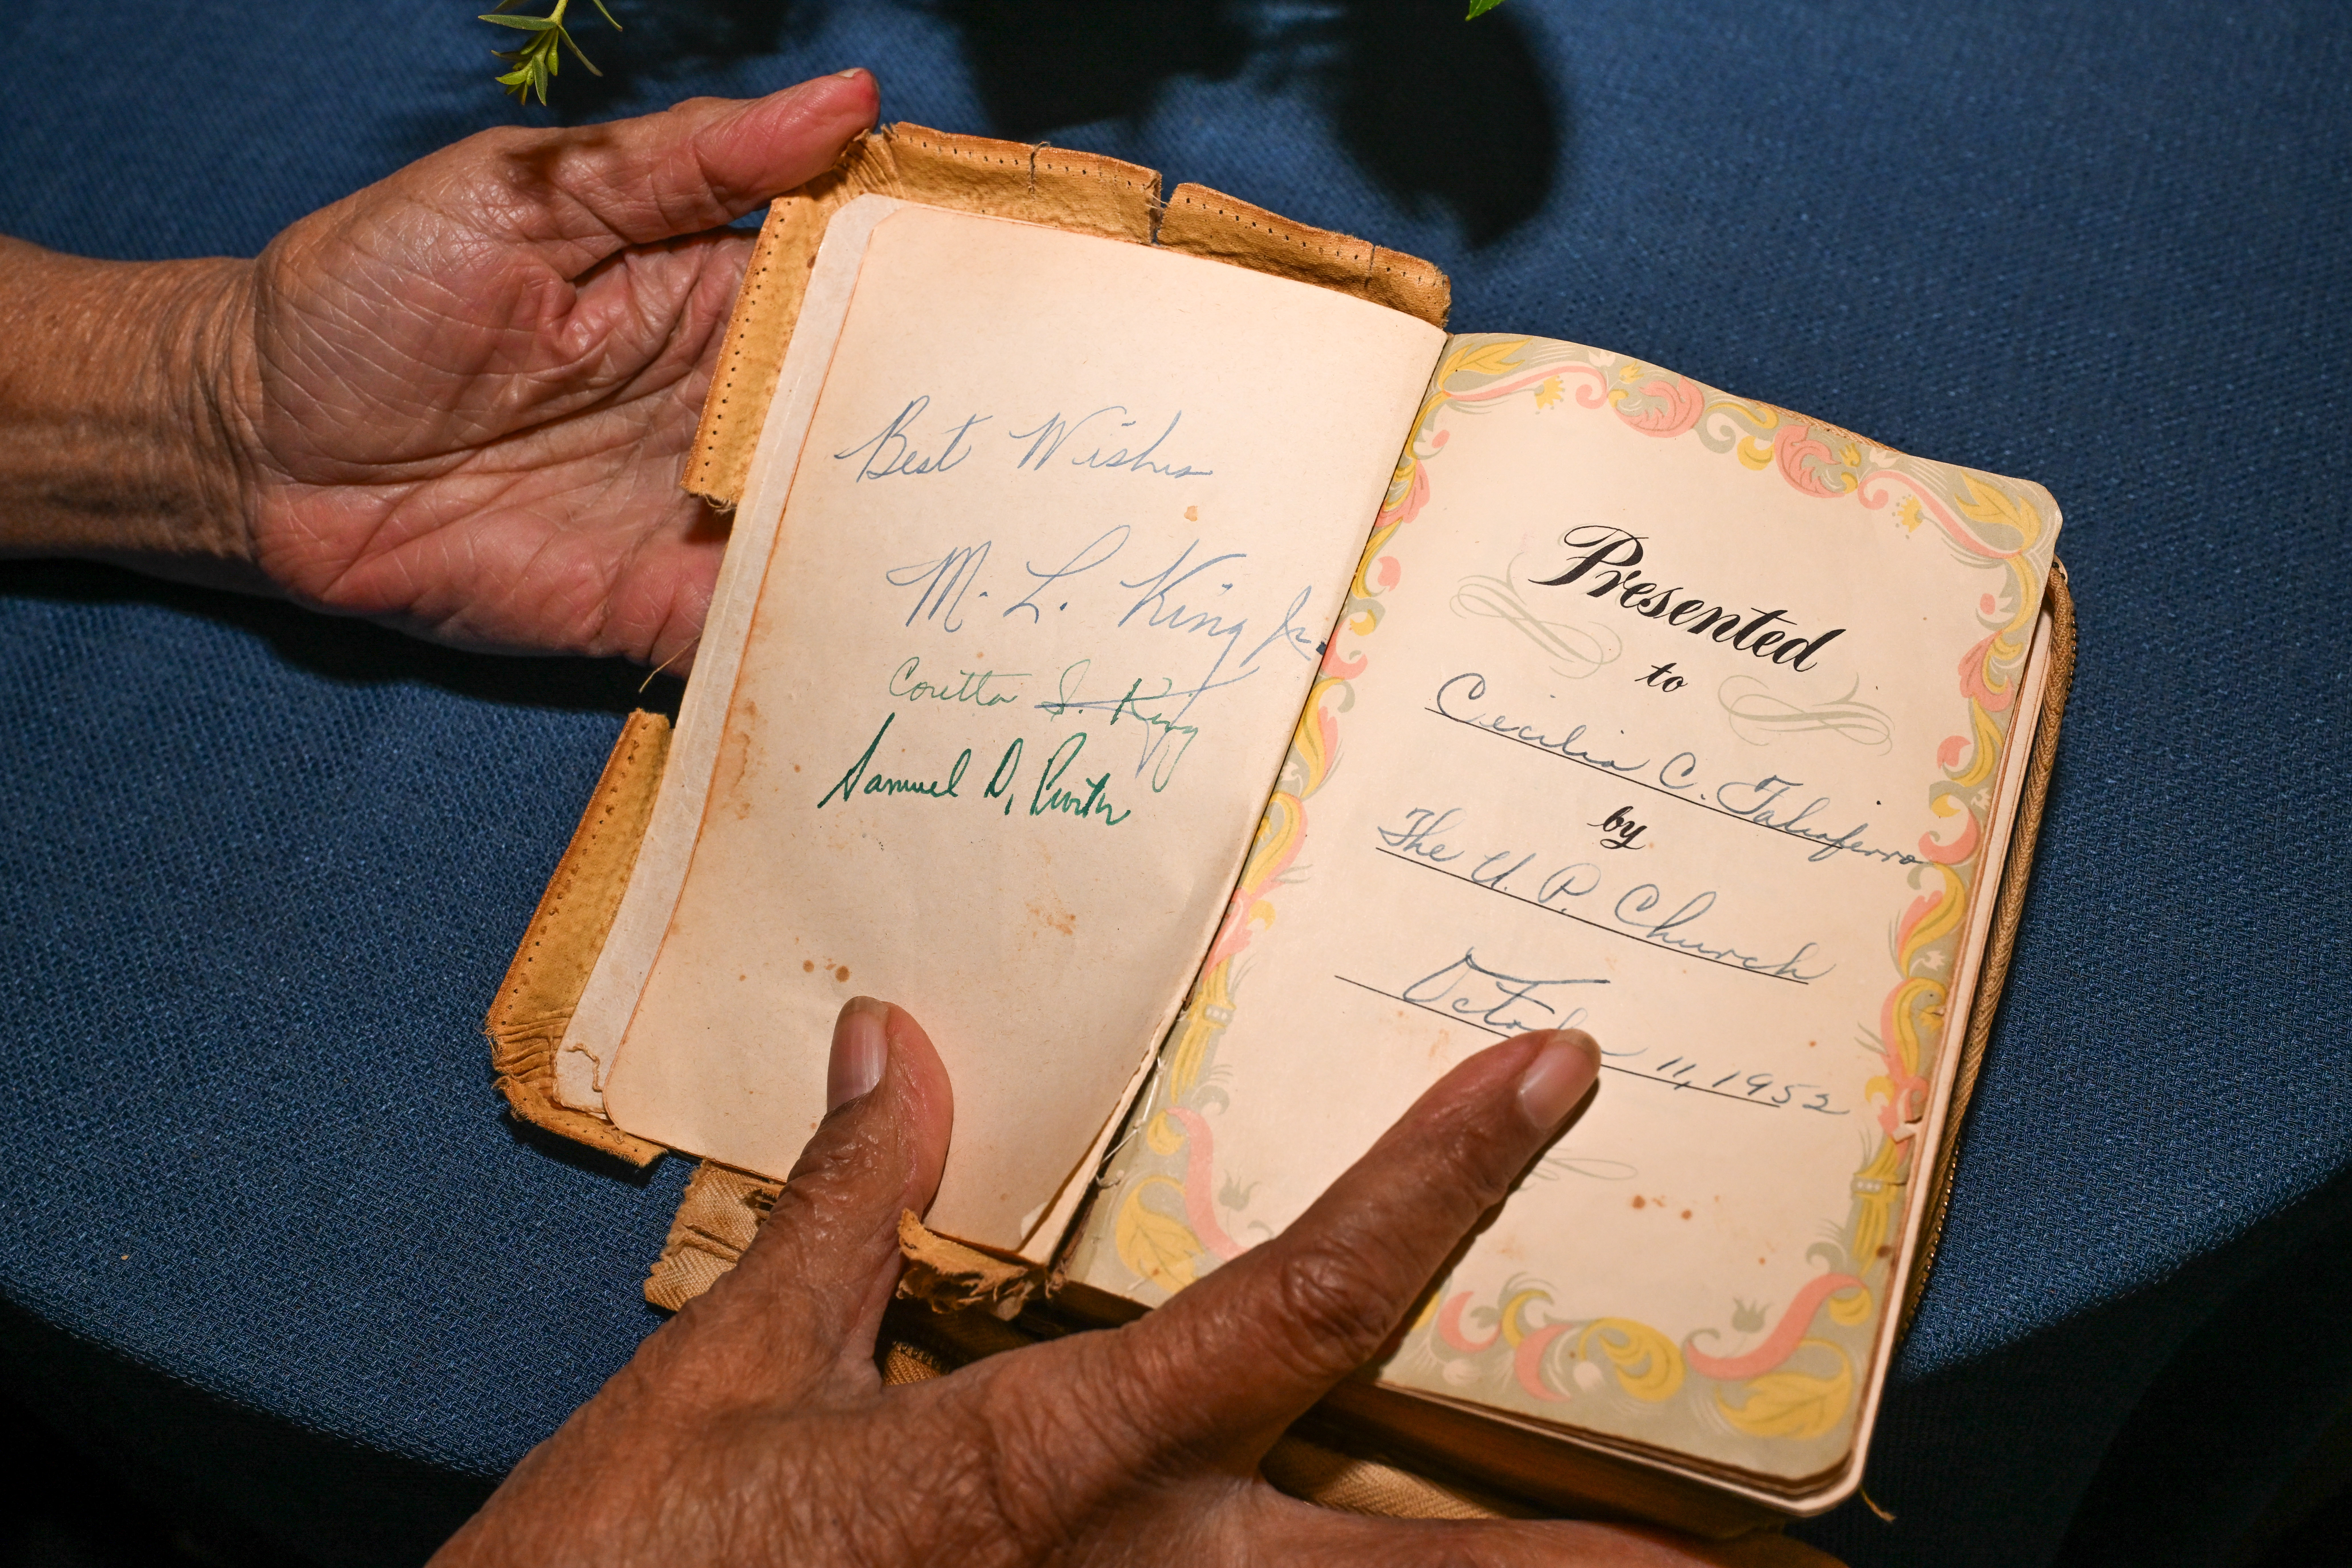 Best Wishes
M. L. King Jr.
Coretta S. King
Samuel D.
Presented
to
Cecilia C. Taliaferro
by
The U. P. Church
October 11, 1952